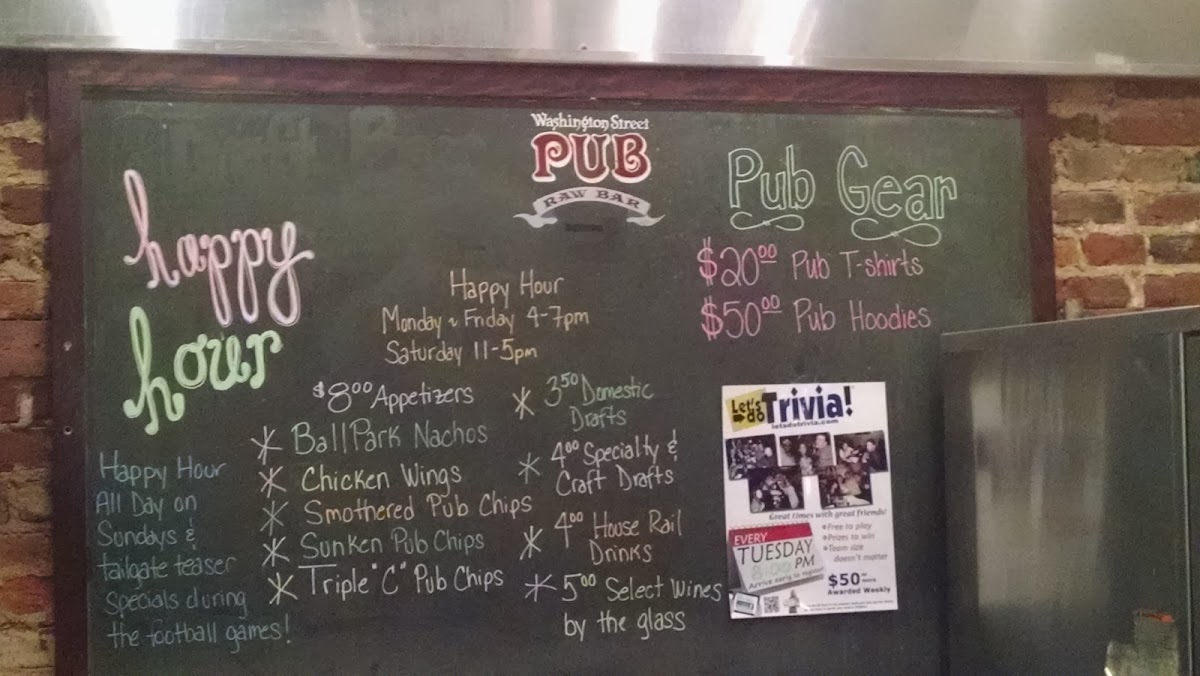 Washington Street
PUB
RAW BAR
happy
hour
Happy Hour
Monday ~ Friday 4-7pm
Saturday 11-5pm
$8.00 Appetizers
* BallPark Nachos
* Chicken Wings
* Smothered Pub Chips
* Sunken Pub Chips
* Triple "C" Pub Chips
* 3.50 Domestic
Drafts
* 4.00 Specialty &
Craft Drafts
* 4.00 House Rail
Drinks
* 5.00 Select Wines
by the glass
Happy Hour
All Day on
Sundays &
tailgate teaser
Specials during
the football games!
Pub Gear
$20.00 Pub T-shirts
$50.00 Pub Hoodies
Let's do Trivia!
letsdotrivia.com
Great times with great friends!
EVERY
TUESDAY
8:00 PM
Arrive early to register
Free to play
Prizes to win
Team size
doesn't matter
$50 or more
Awarded Weekly